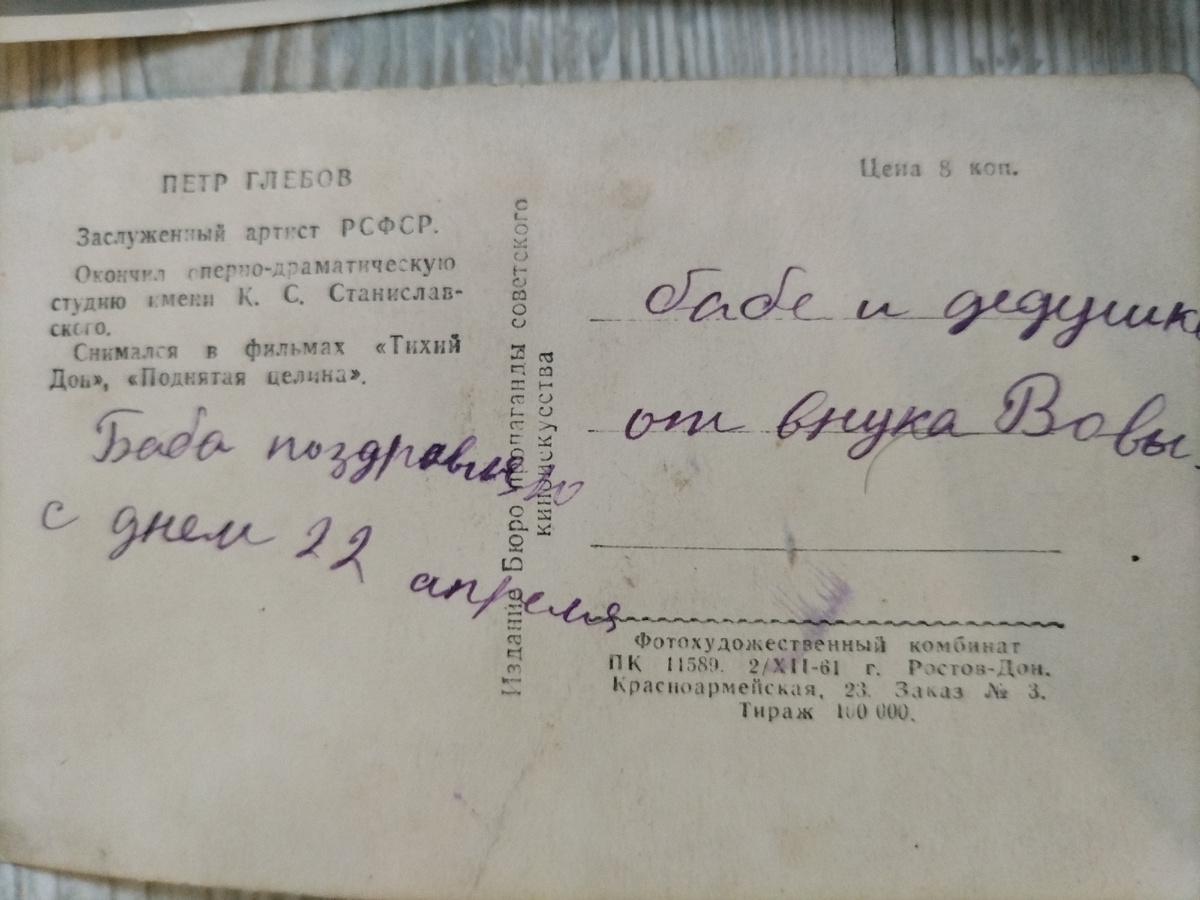 ПЕТР ГЛЕБОВ
Заслуженный артист РСФСР.
Окончил оперно-драматическую
студию имени К. С. Станислав-
ского.
Снимался в фильмах «Тихий
Дон», «Поднятая целина».
Баба поздравляю
с днем 22
апреля
Издание Бюро пропаганды советского
киноискусства
Цена 8 коп.
бабе и дедушке
от внука Вовы.
Фотохудожественный комбинат
ПК 11589. 2/XII-61 г. Ростов-Дон.
Красноармейская, 23. Заказ № 3.
Тираж 100 000.